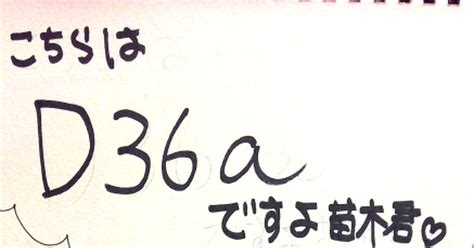 こちらは
D36a
ですよ苗木君♡